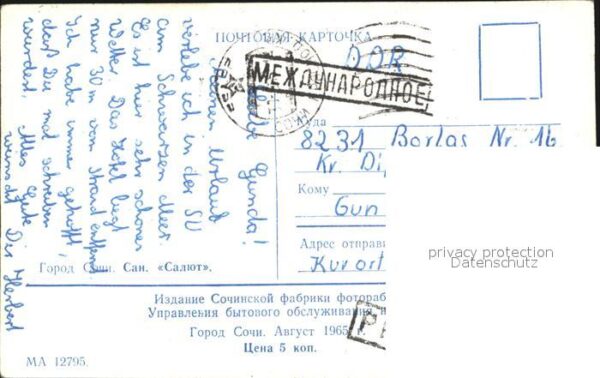 ПОЧТОВАЯ КАРТОЧКА
DDR
МЕЖДУНАРОДНОЕ
Куда
8231 Borlas Nr. 16
Kr. Di
Кому
Gun
Адрес отправи
Kurort
privacy protection
Datenschutz
Liebe Gunda!
meinen Urlaub
verlebe ich in der SU
am Schwarzen Meer.
Es ist hier sehr schönes
Wetter. Das Hotel liegt
nur 30 m vom Strand entfernt
Ich habe immer gehofft,
daß Du mal schreiben
würdest. Alles Gute
wünscht Dir Herbert
Город Сочи. Сан. «Салют».
Издание Сочинской фабрики фотораб
Управления бытового обслуживания
Город Сочи. Август 1965 г.
Цена 5 коп.
МА 12795.